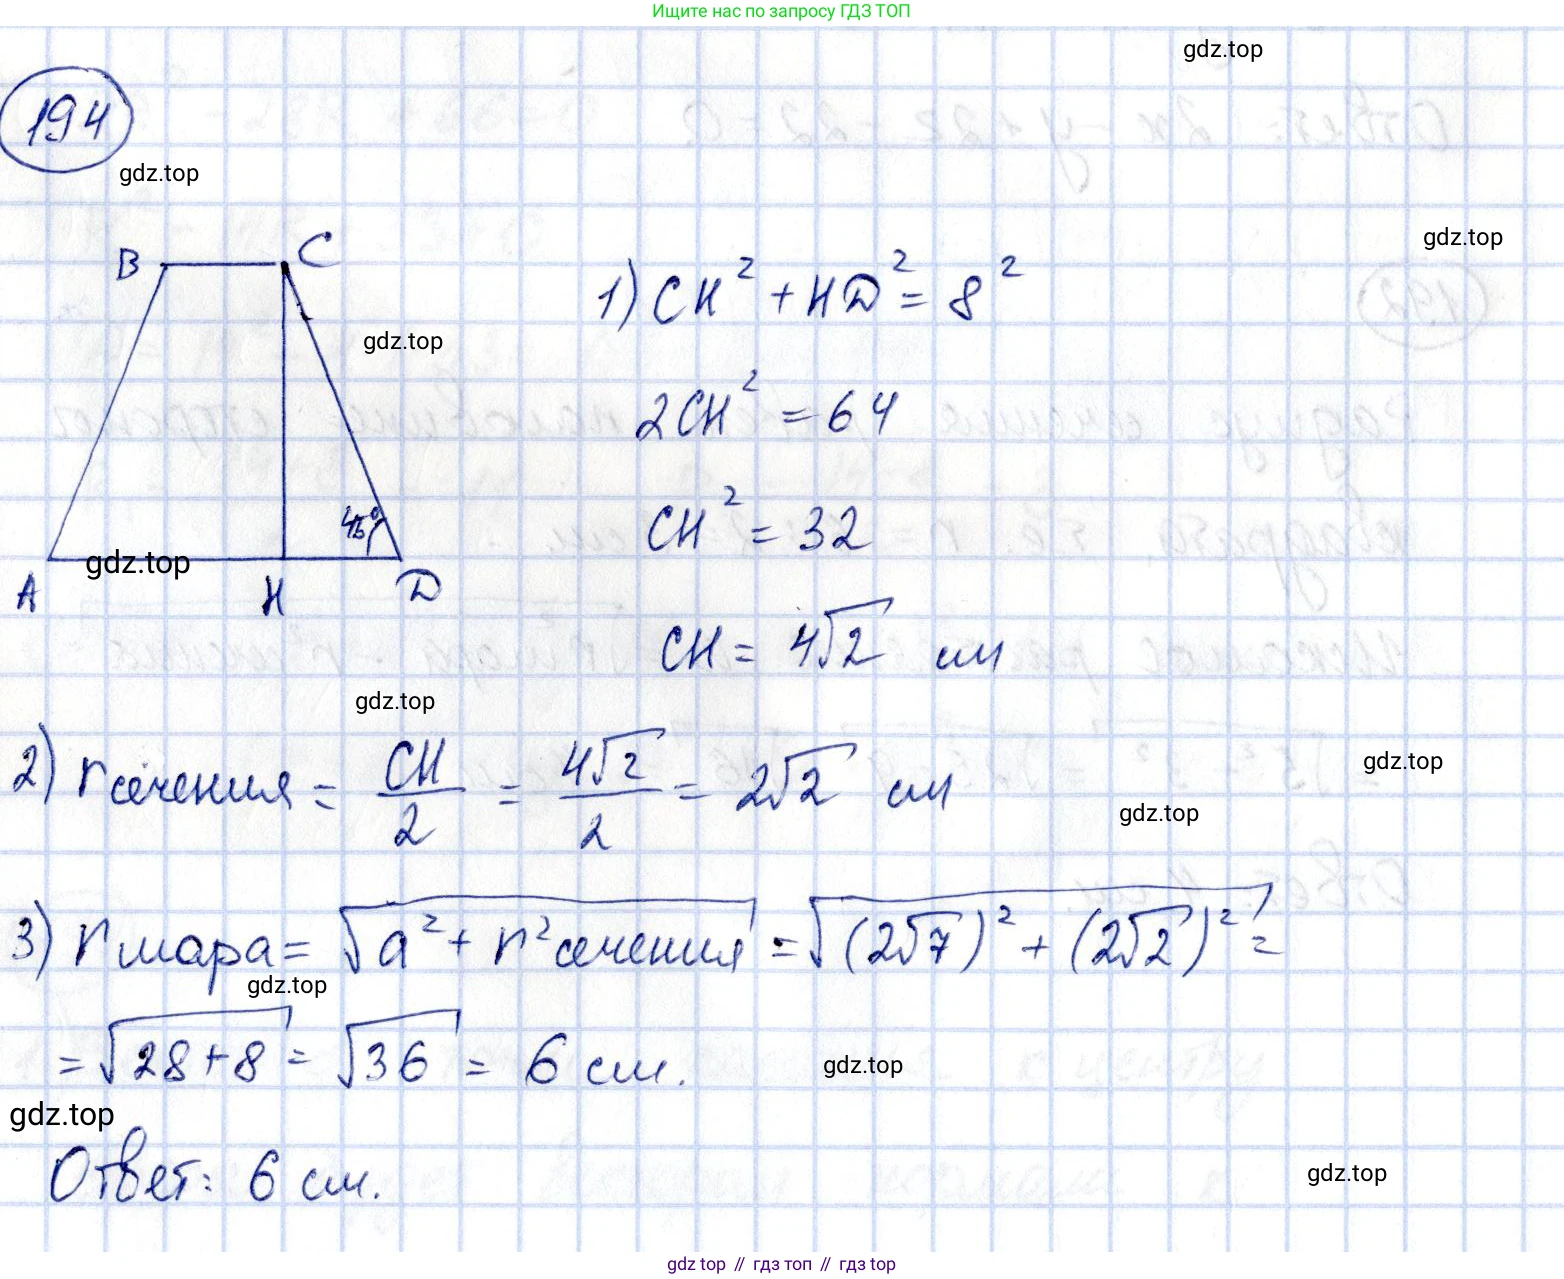 Ищите нас по запросу ГДЗ ТОП
gdz.top
194
gdz.top
B C
gdz.top
1) CH² + HD² = 8²
gdz.top
2CH² = 64
45°
CH² = 32
gdz.top
A H D
CH = 4√2 см
gdz.top
2) rсечения = CH/2 = 4√2/2 = 2√2 см
gdz.top
gdz.top
3) rшара = √(a² + r²сечения) = √((2√7)² + (2√2)²) =
gdz.top
= √(28+8) = √36 = 6 см.
gdz.top
gdz.top
Ответ: 6 см.
gdz.top
gdz top // гдз топ // гдз top